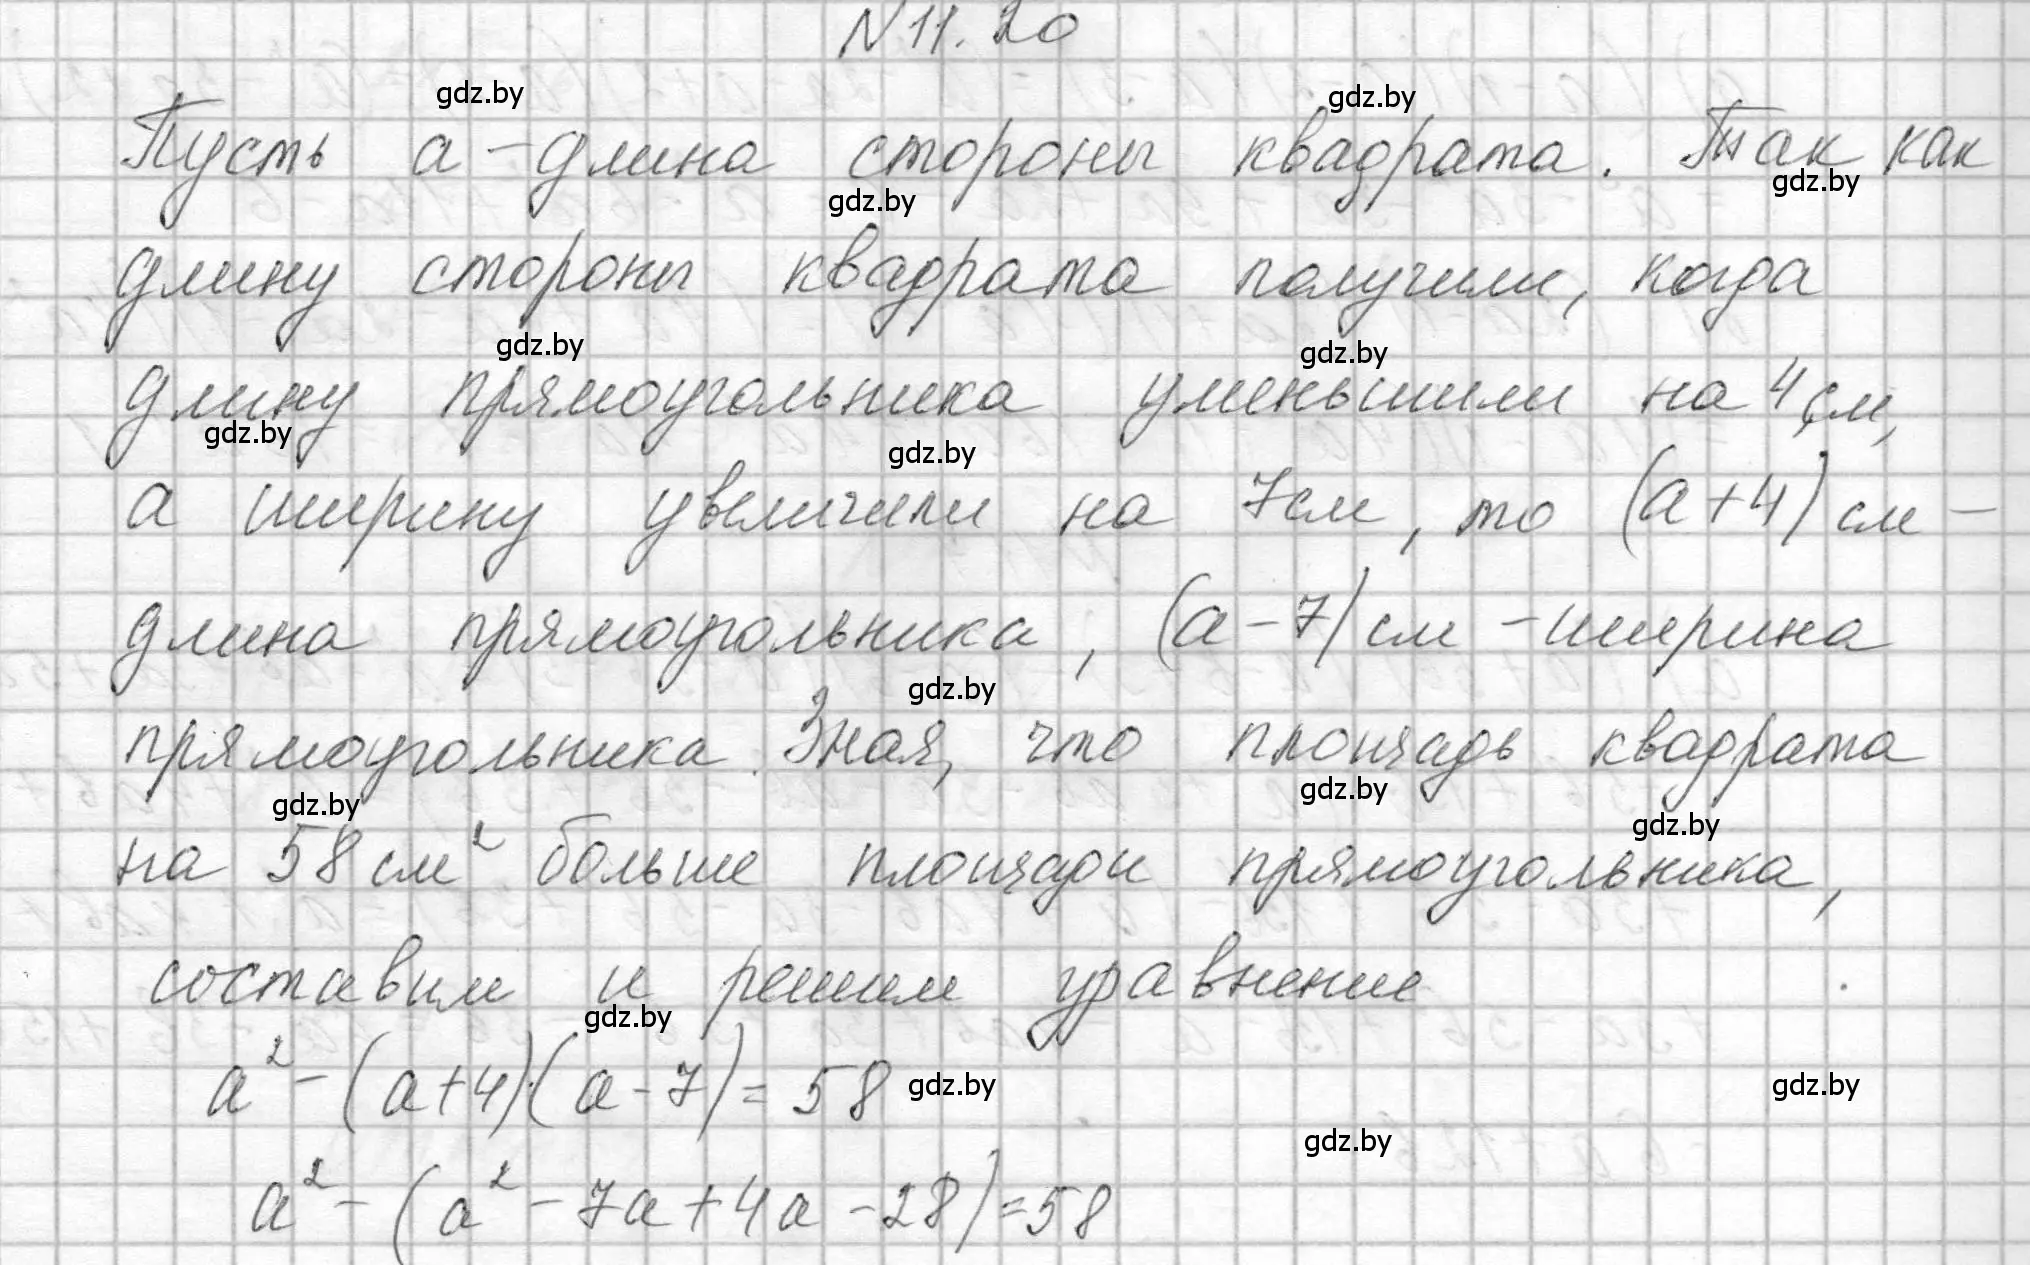 N 11. 20
gdz.by gdz.by
Пусть a - длина стороны квадрата. Так как
gdz.by gdz.by
длину стороны квадрата получили, когда
gdz.by gdz.by
длину прямоугольника уменьшили на 4 см,
gdz.by gdz.by
а ширину увеличили на 7 см, то (a + 4) см -
длина прямоугольника, (a - 7) см - ширина
gdz.by
прямоугольника. Зная, что площадь квадрата
gdz.by gdz.by gdz.by
на 58 см² больше площади прямоугольника,
составим и решим уравнение
gdz.by
a² - (a + 4)·(a - 7) = 58 gdz.by gdz.by
gdz.by
a² - (a² - 7a + 4a - 28) = 58